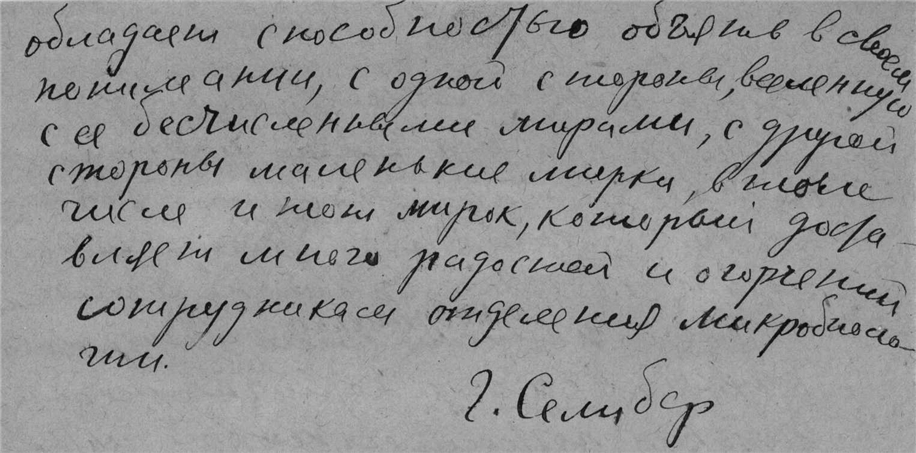 обладает способностью объяв в своем
понимании, с одной стороны, вселенную
с ее бесчисленными мирами, с другой
стороны маленькие мирки, в том
числе и тот мирок, который доста-
вляет много радостей и огорчений
сотрудникам отделения микробиоло-
гии.
Г. Селибер